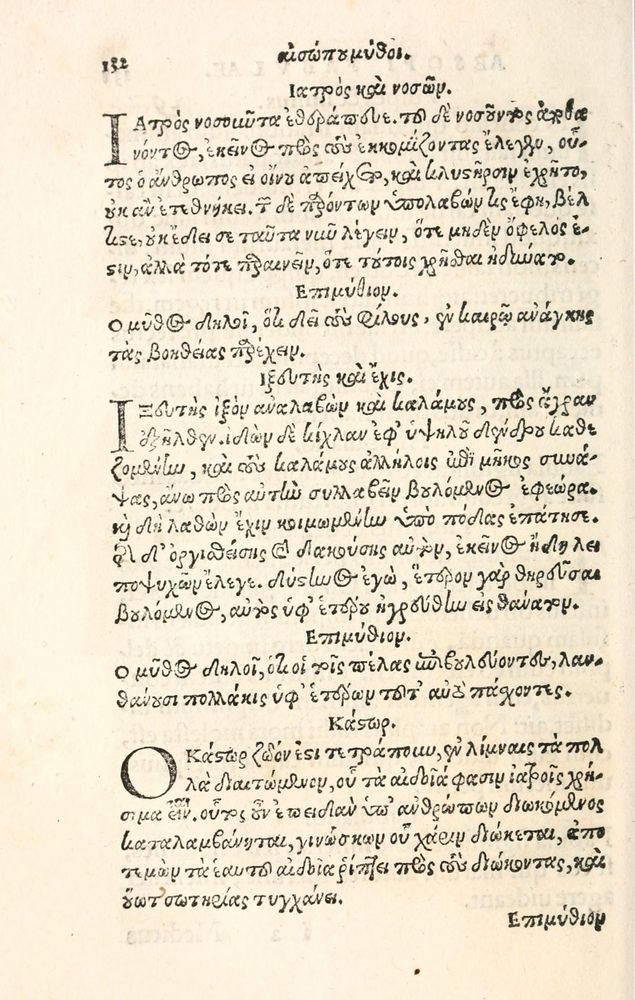 152 αἰσώπου μῦθοι.
Ἰατρὸς καὶ νοσῶν.
ΙΑτρὸς νοσοῦντα ἐθεράπευε. τοῦ δὲ νοσοῦντος ἀποθα
νόντος, ἐκεῖνος πρὸς τοὺς ἐκκομίζοντας ἔλεγεν, οὗ-
τος ὁ ἄνθρωπος εἰ οἴνου ἀπείχετο, καὶ κλυστῆρσιν ἐχρῆτο,
οὐκ ἂν ἐτεθνήκει. τῶν δὲ παρόντων ὑπολαβών τις ἔφη, βέλ
τιστε, οὐκ ἔδει σε ταῦτα νῦν λέγειν, ὅτε μηδὲν ὄφελός ἐ-
στιν, ἀλλὰ τότε παραινεῖν, ὅτε τούτοις χρῆσθαι ἠδύνατο.
Ἐπιμύθιον.
Ο μῦθος δηλοῖ, ὅτι δεῖ τοὺς φίλους, ἐν καιρῷ ἀνάγκης
τὰς βοηθείας παρέχειν.
Ἰξευτὴς καὶ ἔχις.
ΙΞευτὴς ἰξὸν ἀναλαβὼν καὶ καλάμους, πρὸς ἄγραν
ἐξῆλθεν. ἰδὼν δὲ κίχλαν ἐφ' ὑψηλοῦ δένδρου καθε
ζομένην, καὶ τοὺς καλάμους ἀλλήλοις ἐπὶ μῆκος συνά-
ψας, ἄνω πρὸς αὐτὴν συλλαβεῖν βουλόμενος ἐφεώρα.
καὶ δὴ λαθὼν ἔχιν κοιμωμένην ὑπὸ πόδας ἐπάτησε.
τῆς δ' ὀργισθείσης καὶ δακούσης αὐτὸν, ἐκεῖνος ἤδη λει
ποψυχῶν ἔλεγε. δύστηνος ἐγὼ, ἕτερον γὰρ θηρεῦσαι
βουλόμενος, αὐτὸς ὑφ' ἑτέρου ἠγρεύθην εἰς θάνατον.
Ἐπιμύθιον.
Ο μῦθος δηλοῖ, ὅτι οἱ τοῖς πέλας ἐπιβουλεύοντες, λαν-
θάνουσι πολλάκις ὑφ' ἑτέρων τοῦτ' αὐτὸ πάσχοντες.
Κάστωρ.
Ο Κάστωρ ζῶόν ἐστι τετράπουν, ἐν λίμναις τὰ πολ
λὰ διαιτώμενον, οὗ τὰ αἰδοῖά φασιν ἰατροῖς χρή-
σιμα εἶναι. οὗτος οὖν ἐπειδὰν ὑπ' ἀνθρώπων διωκόμενος
καταλαμβάνηται, γινώσκων οὗ χάριν διώκεται, ἀπο
τεμὼν τὰ ἑαυτοῦ αἰδοῖα ῥίπτει πρὸς τοὺς διώκοντας, καὶ
οὕτω σωτηρίας τυγχάνει.
Ἐπιμύθιον